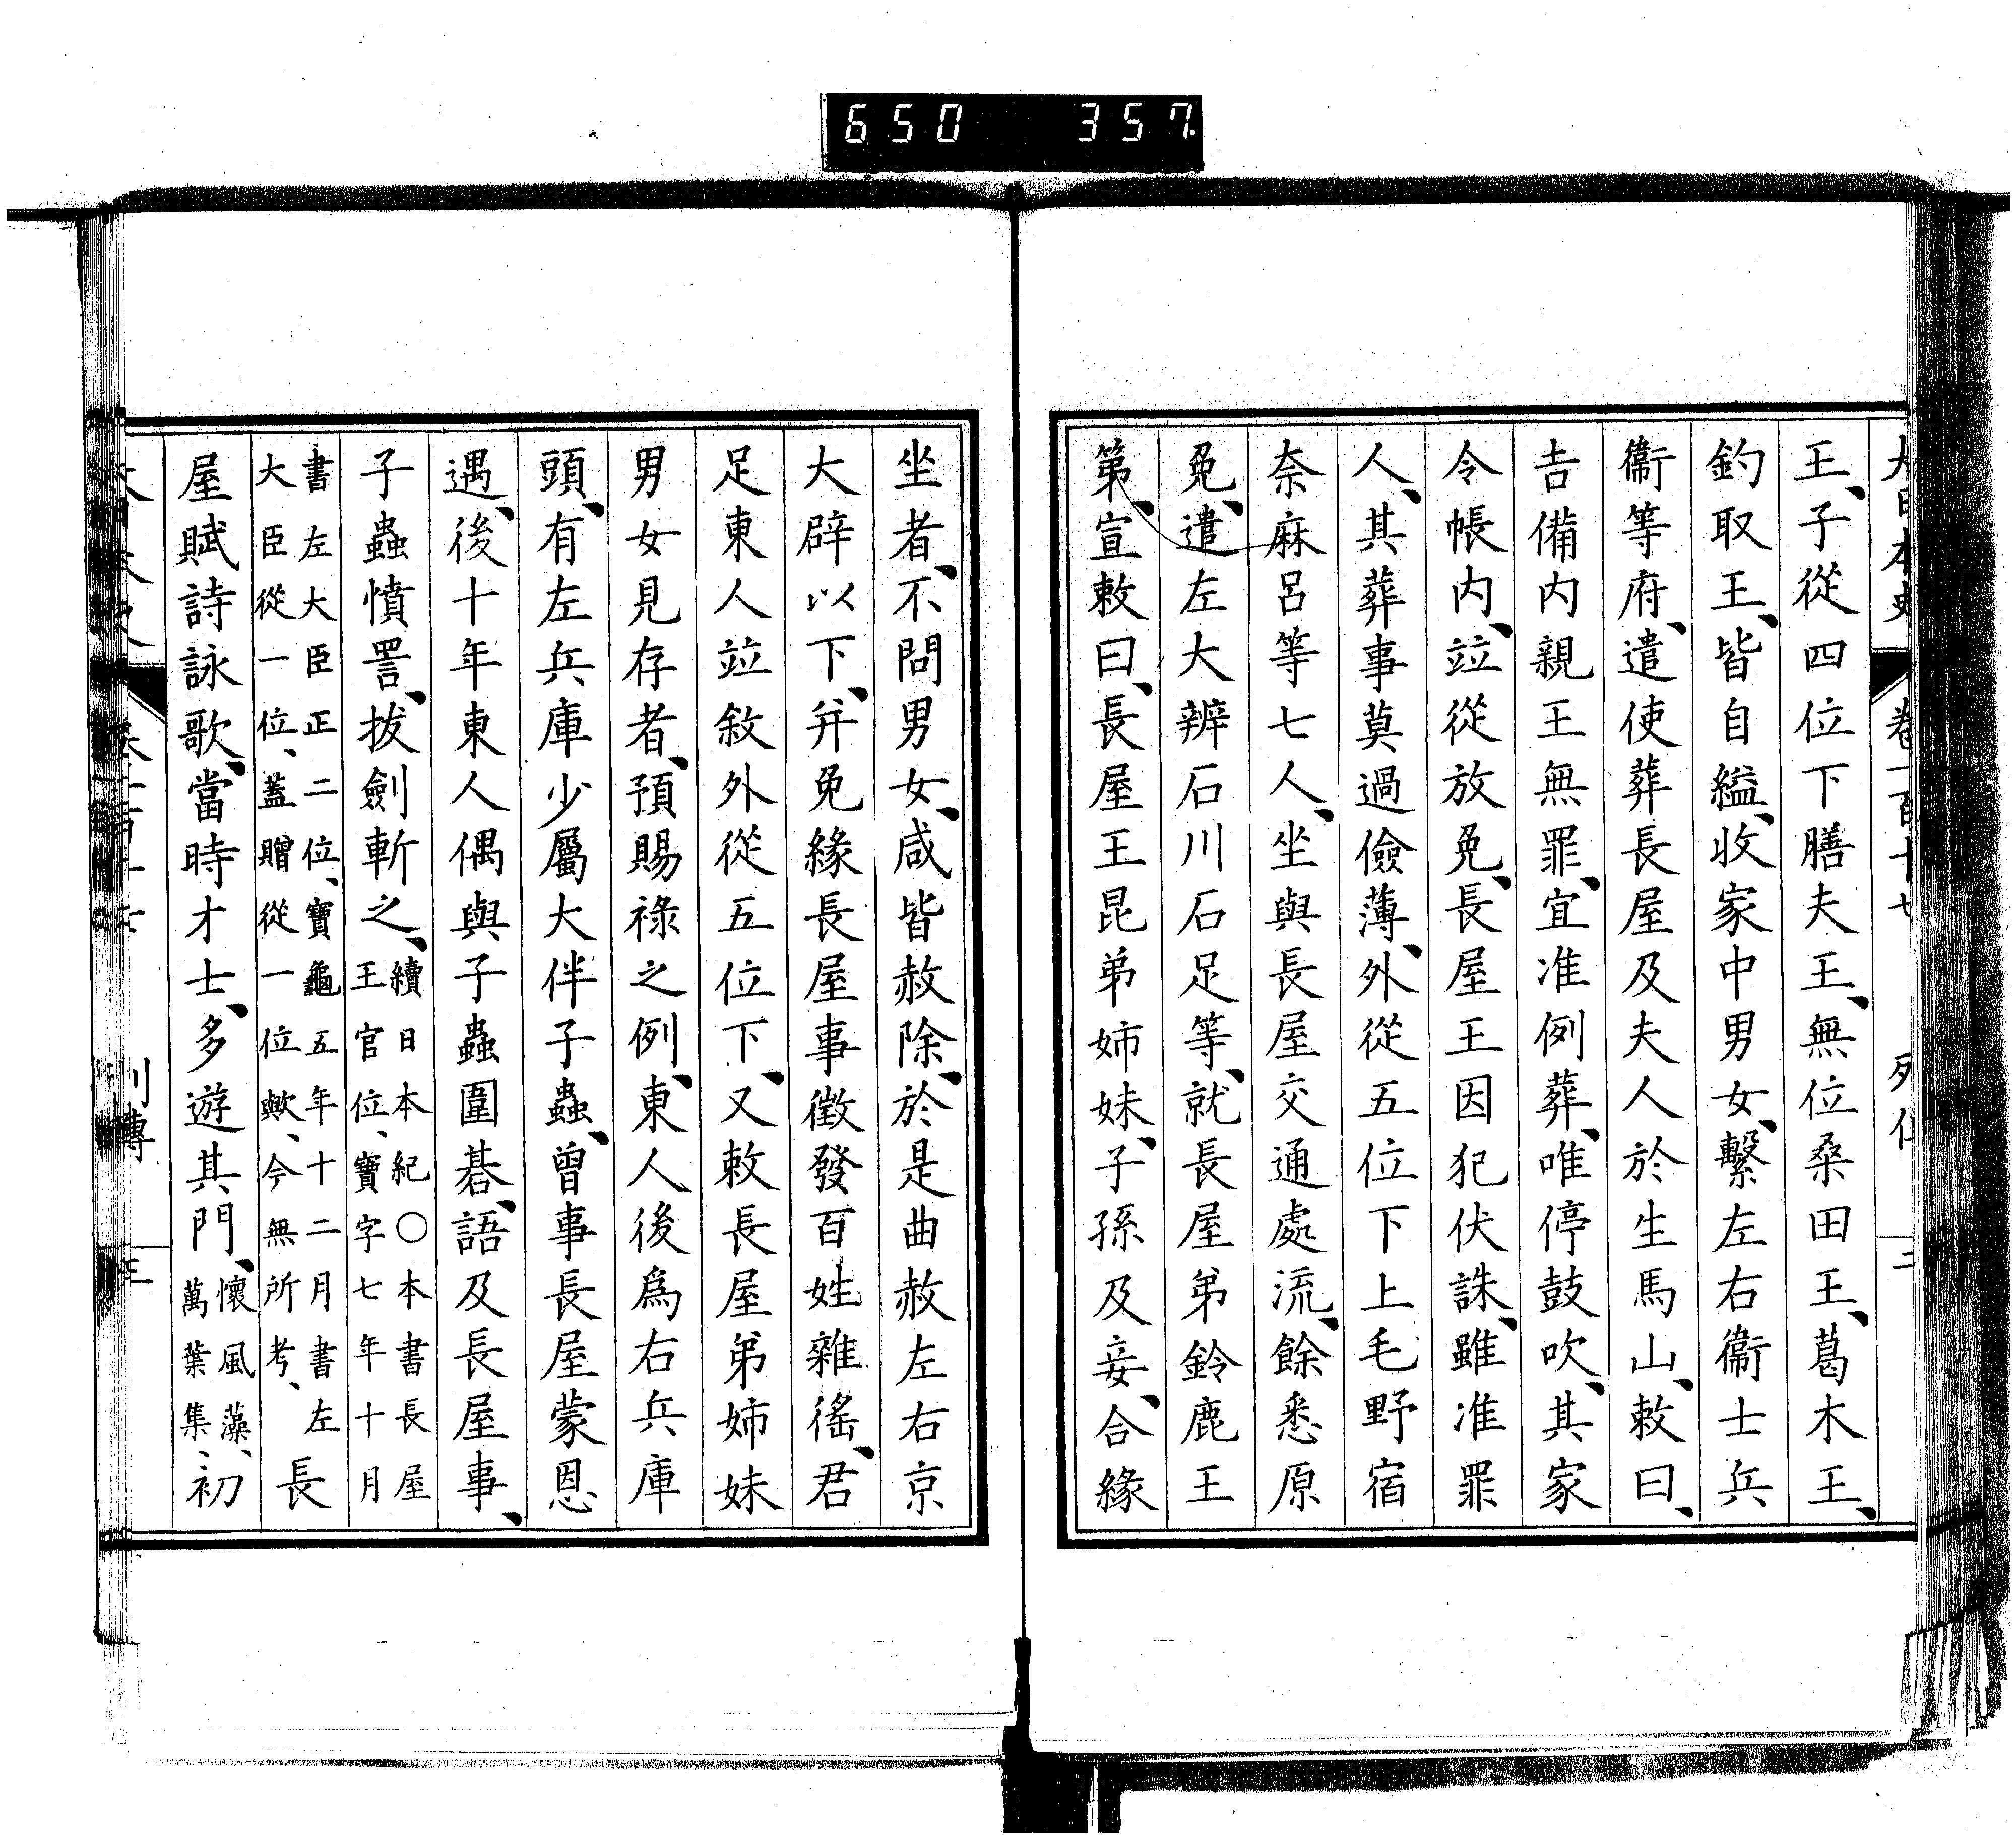 650 357
大日本史 卷一百十七 列傳 二
王、子從四位下膳夫王、無位桑田王、葛木王、
釣取王、皆自縊、收家中男女、繫左右衞士兵
衞等府、遣使葬長屋及夫人於生馬山、敕曰、
吉備内親王無罪、宜准例葬、唯停鼓吹、其家
令帳内、竝從放免、長屋王因犯伏誅、雖准罪
人、其葬事莫過儉薄、外從五位下上毛野宿
奈麻呂等七人、坐與長屋交通處流、餘悉原
免、遣左大辨石川石足等、就長屋弟鈴鹿王
第、宣敕曰、長屋王昆弟姉妹、子孫及妾、合緣
坐者、不問男女、咸皆赦除、於是曲赦左右京
大辟以下、幷免緣長屋事徵發百姓雜徭、君
足東人竝敘外從五位下、又敕長屋弟姉妹
男女見存者、預賜祿之例、東人後爲右兵庫
頭、有左兵庫少屬大伴子蟲、曾事長屋蒙恩
遇、後十年東人偶與子蟲圍碁、語及長屋事、
子蟲憤詈、拔劍斬之、續日本紀○本書長屋
王官位、寶字七年十月
書左大臣正二位、寶龜五年十二月書左
大臣從一位、蓋贈從一位歟、今無所考、長
屋賦詩詠歌、當時才士、多遊其門、懷風藻、
萬葉集、初
列傳 三